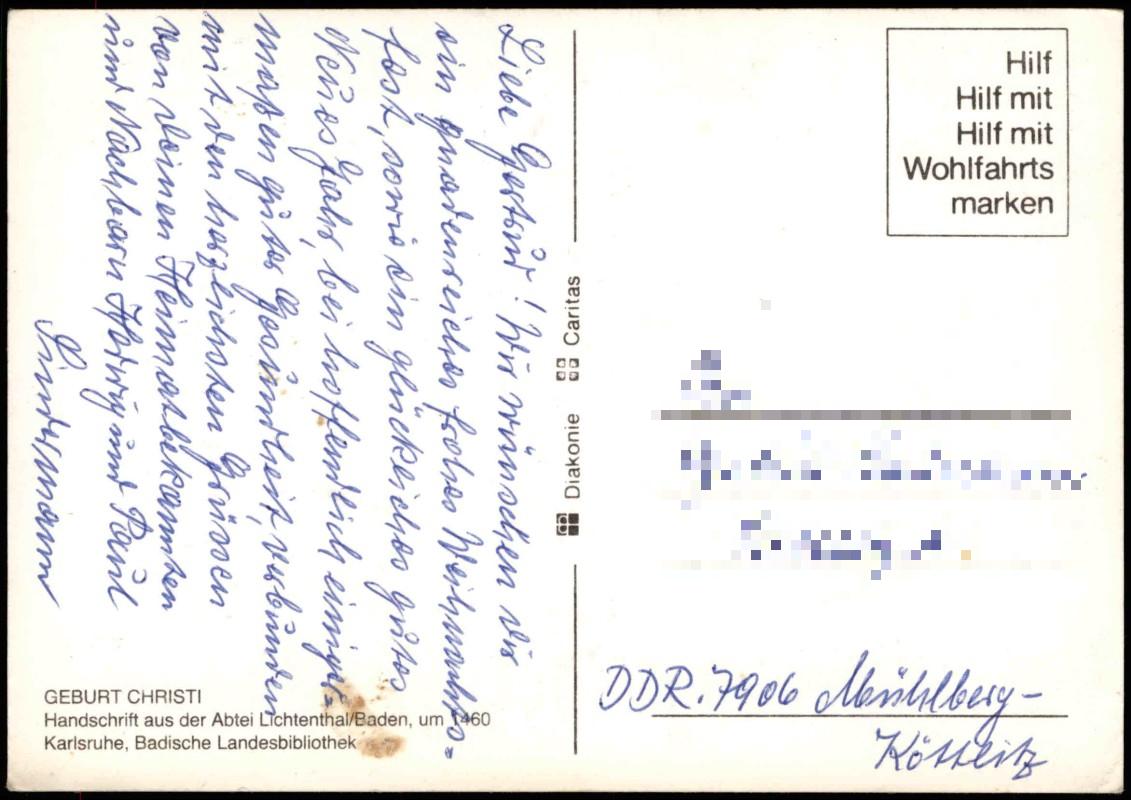 Liebe Gertrud! Wir wünschen dir
ein gnadenreiches frohes Weihnachts-
fest, sowie ein glückliches gutes
Neues Jahr, bei hoffendlich einiger-
maßen guter Gesundheit, verbunden
mit den herzlichsten Grüssen
von deinen Heimatbekannten
und Nachbarn Hedwig und Paul
Lindermann
GEBURT CHRISTI
Handschrift aus der Abtei Lichtenthal/Baden, um 1460
Karlsruhe, Badische Landesbibliothek
Diakonie Caritas
Hilf
Hilf mit
Hilf mit
Wohlfahrts
marken
DDR. 7906 Mühlberg-
Köttlitz